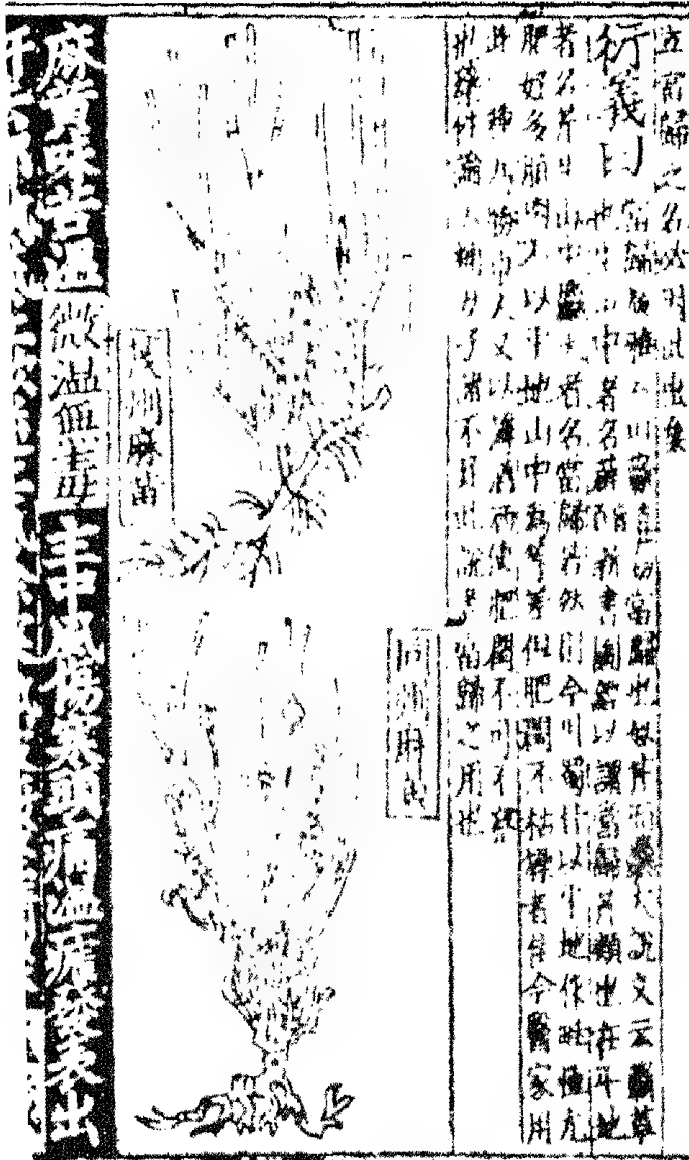 立當歸之名必因此出矣
衍義曰當歸廣雅云山蘄古芹切當歸也似芹而麤大說文云蘄草
也生山中者名薜音百新書圖經以謂當歸芹類也在平地
者名芹生山中麤大者名當歸若然則今川蜀皆以平地作畦種尤
肥好多脂肉不以平地山中為等差但肥潤不枯燥者佳今醫家用
此一種為勝市人又以薄酒洒使肥潤不可不察
也藥性論云補女子諸不足此說盡當歸之用也
同州麻黃
茂州麻黃
麻黃味苦溫微溫無毒主中風傷寒頭痛溫瘧發表出